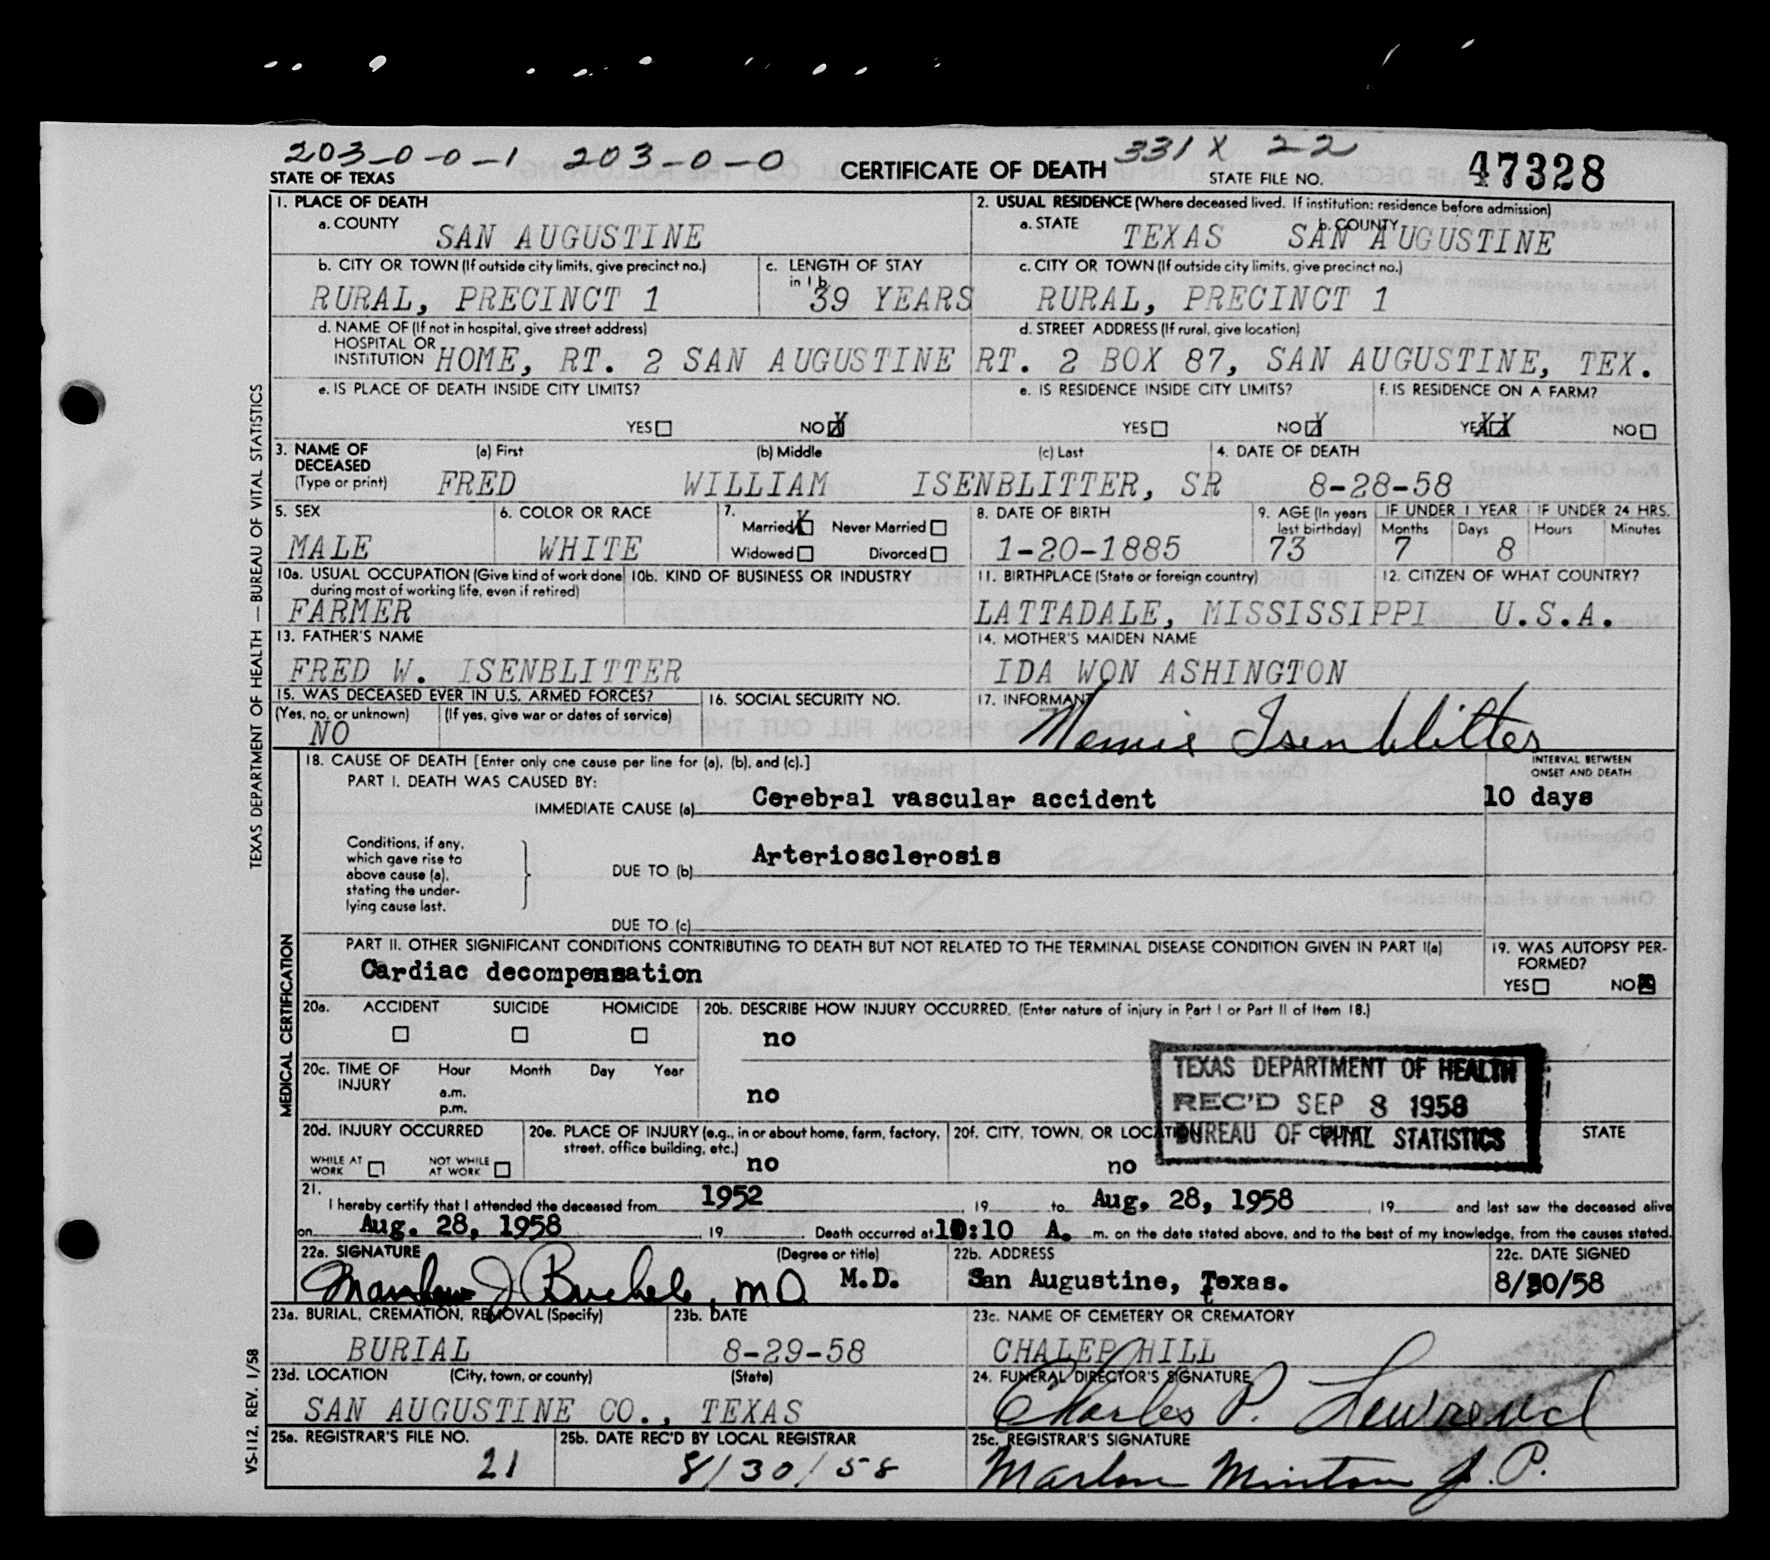 203-0-0-1 203-0-0 331 X 22
STATE OF TEXAS CERTIFICATE OF DEATH STATE FILE NO. 47328
1. PLACE OF DEATH 2. USUAL RESIDENCE (Where deceased lived. If institution: residence before admission)
a. COUNTY SAN AUGUSTINE a. STATE TEXAS b. COUNTY SAN AUGUSTINE
b. CITY OR TOWN (If outside city limits, give precinct no.) c. LENGTH OF STAY in 1b c. CITY OR TOWN (If outside city limits, give precinct no.)
RURAL, PRECINCT 1 39 YEARS RURAL, PRECINCT 1
d. NAME OF (If not in hospital, give street address) d. STREET ADDRESS (If rural, give location)
HOSPITAL OR
INSTITUTION HOME, RT. 2 SAN AUGUSTINE RT. 2 BOX 87, SAN AUGUSTINE, TEX.
e. IS PLACE OF DEATH INSIDE CITY LIMITS? e. IS RESIDENCE INSIDE CITY LIMITS? f. IS RESIDENCE ON A FARM?
YES NO X YES NO X YES XX NO
3. NAME OF DECEASED (Type or print) (a) First (b) Middle (c) Last 4. DATE OF DEATH
FRED WILLIAM ISENBLITTER, SR 8-28-58
5. SEX 6. COLOR OR RACE 7. Married X Never Married 8. DATE OF BIRTH 9. AGE (In years last birthday) IF UNDER 1 YEAR IF UNDER 24 HRS.
Widowed Divorced Months Days Hours Minutes
MALE WHITE 1-20-1885 73 7 8
10a. USUAL OCCUPATION (Give kind of work done during most of working life, even if retired) 10b. KIND OF BUSINESS OR INDUSTRY 11. BIRTHPLACE (State or foreign country) 12. CITIZEN OF WHAT COUNTRY?
FARMER LATTADALE, MISSISSIPPI U.S.A.
13. FATHER'S NAME 14. MOTHER'S MAIDEN NAME
FRED W. ISENBLITTER IDA WON ASHINGTON
15. WAS DECEASED EVER IN U.S. ARMED FORCES? 16. SOCIAL SECURITY NO. 17. INFORMANT
(Yes, no, or unknown) (If yes, give war or dates of service)
NO Isenblitter
18. CAUSE OF DEATH [Enter only one cause per line for (a), (b), and (c).] INTERVAL BETWEEN ONSET AND DEATH
PART I. DEATH WAS CAUSED BY:
IMMEDIATE CAUSE (a) Cerebral vascular accident 10 days
Conditions, if any,
which gave rise to
above cause (a),
stating the under-
lying cause last.
DUE TO (b) Arteriosclerosis
DUE TO (c)
PART II. OTHER SIGNIFICANT CONDITIONS CONTRIBUTING TO DEATH BUT NOT RELATED TO THE TERMINAL DISEASE CONDITION GIVEN IN PART I(a) 19. WAS AUTOPSY PER-FORMED?
Cardiac decompensation YES NO X
20a. ACCIDENT SUICIDE HOMICIDE 20b. DESCRIBE HOW INJURY OCCURRED. (Enter nature of injury in Part I or Part II of Item 18.)
no
20c. TIME OF INJURY Hour Month Day Year
a.m.
p.m.
no
TEXAS DEPARTMENT OF HEALTH
REC'D SEP 8 1958
BUREAU OF VITAL STATISTICS
20d. INJURY OCCURRED 20e. PLACE OF INJURY (e.g., in or about home, farm, factory, street, office building, etc.) 20f. CITY, TOWN, OR LOCATION COUNTY STATE
WHILE AT WORK NOT WHILE AT WORK no no
21. I hereby certify that I attended the deceased from 1952, 19 to Aug. 28, 1958, 19 and last saw the deceased alive
on Aug. 28, 1958, 19. Death occurred at 10:10 A. m. on the date stated above, and to the best of my knowledge, from the causes stated.
22a. SIGNATURE (Degree or title) 22b. ADDRESS 22c. DATE SIGNED
J. MD M.D. San Augustine, Texas. 8/30/58
23a. BURIAL, CREMATION, REMOVAL (Specify) 23b. DATE 23c. NAME OF CEMETERY OR CREMATORY
BURIAL 8-29-58 CHALEP HILL
23d. LOCATION (City, town, or county) (State) 24. FUNERAL DIRECTOR'S SIGNATURE
SAN AUGUSTINE CO., TEXAS Charles P.
25a. REGISTRAR'S FILE NO. 25b. DATE REC'D BY LOCAL REGISTRAR 25c. REGISTRAR'S SIGNATURE
21 8/30/58 Marlon Minton J.P.
TEXAS DEPARTMENT OF HEALTH — BUREAU OF VITAL STATISTICS
MEDICAL CERTIFICATION
VS-112, REV. 1/58